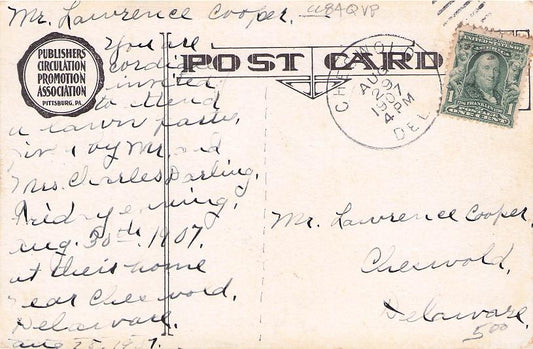 Mr. Lawrence Cooper.
U8AQVP
PUBLISHERS
CIRCULATION
PROMOTION
ASSOCIATION
PITTSBURG, PA.
POST CARD
CHESWOLD
AUG
29
1907
4 PM
DEL.
You are
cordially
invited
to attend
a lawn party,
given by Mr. and
Mrs. Charles Darling,
Friday evening,
Aug. 30th. 1907.
at their home
near Cheswold,
Delaware.
Aug 28, 1907.
Mr. Lawrence Cooper,
Cheswold,
Delaware.
5.00